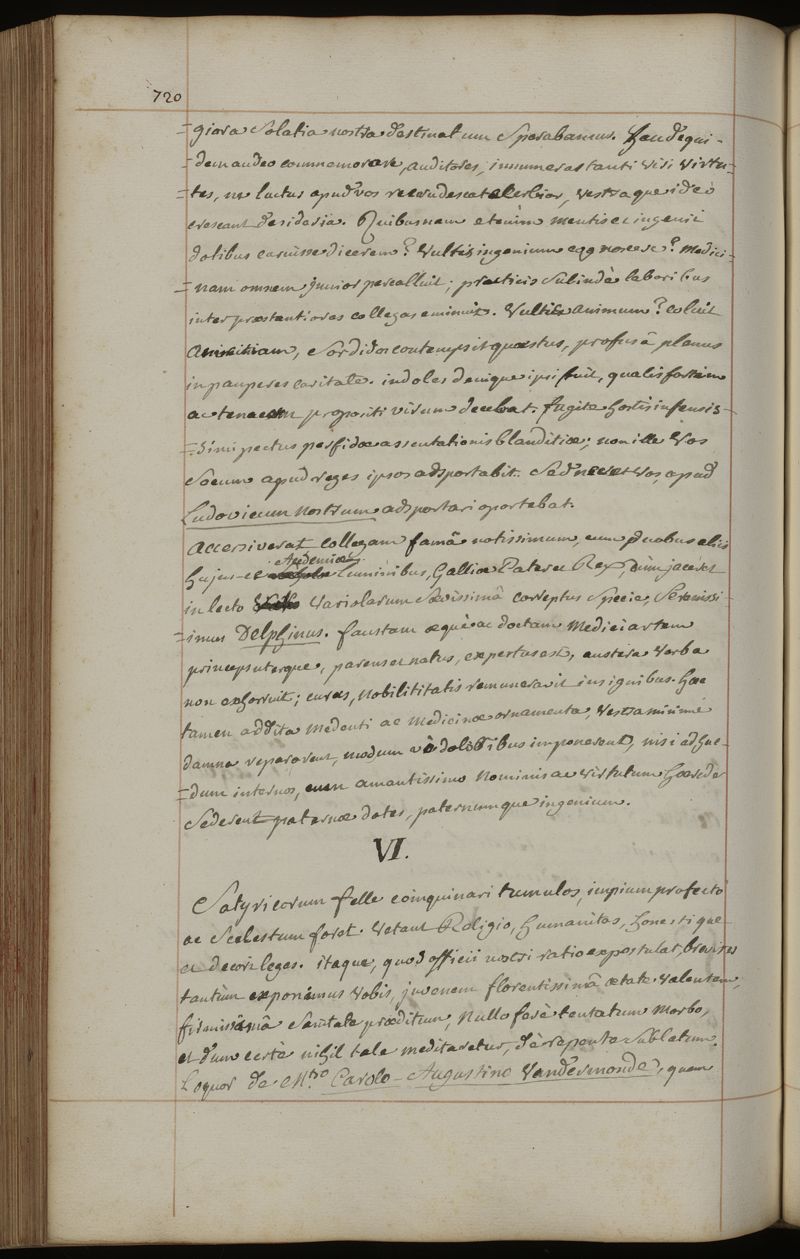 720
=giora solatia nostra destinatum sperabamus. haud equi-
=dem audeo commemorare, auditores, innumeras tanti viri virtu-
=tes, ne luctus apud vos recrudescat acerbior, vestraque ideò
crescant desideria. Quibusnam etenim mentis et ingenii
dotibus caruisse dicerem? Vultis ingenium cognoscere? medici-
=nam omnem junior percalluit; practicis subindè laboribus
inter præstantiores collegas eminuit. Vultis animum? coluit
amicitiam, sordidos contempsit quæstus, profusâ planus
in pauperes caritate. indoles denique ipsi fuit, qualis fortem
ac tenacem propositi virum decebat. fugite hortis infensis-
=simi pectus perfidæ assentationis blanditiæ; non ille vos
secum apud reges ipsos adsportabit. Sed nec et vos, apud
Ludovicum nostrum adsportari oportebat.
Accersiverat collegam famâ notissimum, cum duobus aliis
hujus-ce Academiæ luminibus, Galliæ Pater et Rex, cùm jaceret
in lecto variolarum sævissimâ correptus specie, Serenissi-
=imus Delphinus. faustam æquè ac doctam Medici artem
princeps uterque, parens et natus, expertus est, austera verba
non exhorruit; curas, nobilitatis remuneravit insignibus. hæc
tamen addita medenti ac medicinæ ornamenta, vestra minimè
damna repararent, modum vè doloribus imponerent, nisi adhuc-
=dum inter nos, cum amantissimo nominis ac virtutum hærede
sederent paternæ dotes, paternumque ingenium.
VI.
Satyricorum felle coinquinari tumulos, impium profectò
ac scelestum foret. Vetant Religio, humanitas, honestique
et decori leges. itaque, quod officii nostri ratio expostulat, breviter
tantùm exponimus vobis, juvenem florentissimâ ætate valentem,
firmissimâ sanitate præditum, nullo ferè tentatum morbo,
et dum certè nihil tale meditaretur, dè repente sublatum.
Loquor de M.tro Carolo-Augustino Vandermonde, quem